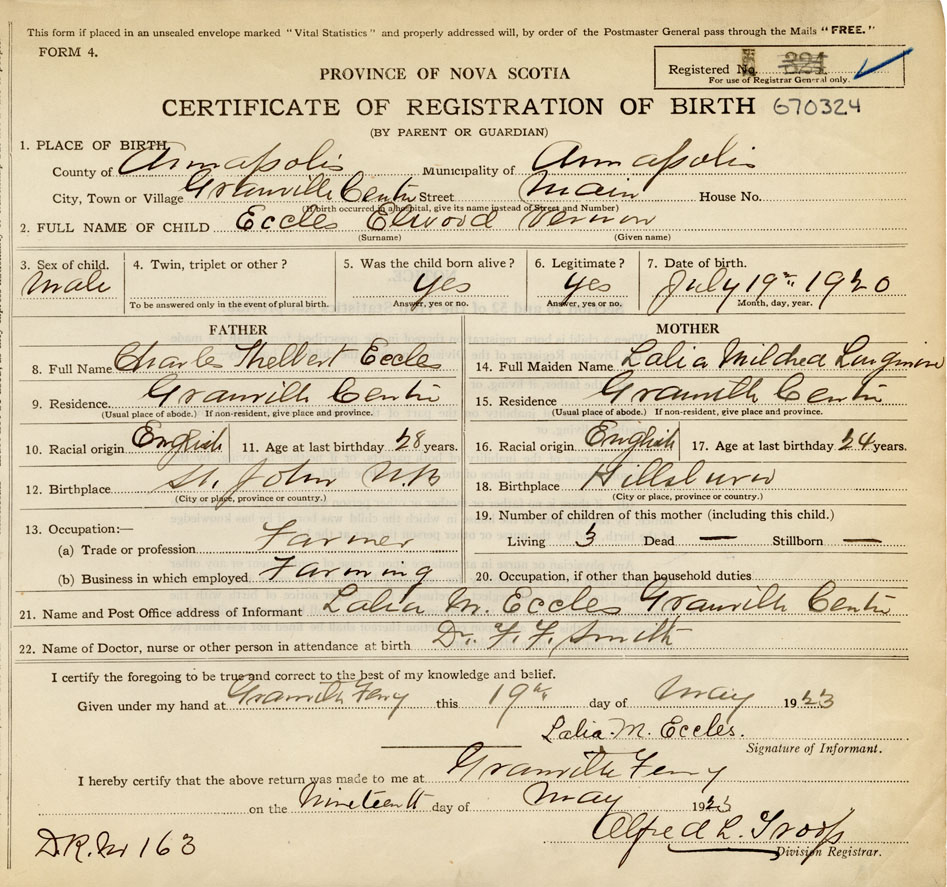 This form if placed in an unsealed envelope marked "Vital Statistics" and properly addressed will, by order of the Postmaster General pass through the Mails "FREE."
FORM 4.
Registered No. 324
For use of Registrar General only.
PROVINCE OF NOVA SCOTIA
CERTIFICATE OF REGISTRATION OF BIRTH 670324
(BY PARENT OR GUARDIAN)
1. PLACE OF BIRTH
County of Annapolis Municipality of Annapolis
City, Town or Village Granville Centre Street Main House No.
(If birth occurred in a hospital, give its name instead of Street and Number)
2. FULL NAME OF CHILD Eccles Elwood Vernon
(Surname) (Given name)
3. Sex of child. 4. Twin, triplet or other? 5. Was the child born alive? 6. Legitimate? 7. Date of birth.
Male Yes Yes July 19th 1920
To be answered only in the event of plural birth. Answer, yes or no. Answer, yes or no. Month, day, year.
FATHER
8. Full Name Charles Eccles
9. Residence. Granville Centre
(Usual place of abode.) If non-resident, give place and province.
10. Racial origin English 11. Age at last birthday 28 years.
12. Birthplace St. John N.B
(City or place, province or country.)
13. Occupation:—
(a) Trade or profession Farmer
(b) Business in which employed. Farming
MOTHER
14. Full Maiden Name Lalia Mildred Longmire
15. Residence Granville Centre
(Usual place of abode.) If non-resident, give place and province.
16. Racial origin English 17. Age at last birthday 24 years.
18. Birthplace Hillsburn
(City or place, province or country.)
19. Number of children of this mother (including this child.)
Living 3 Dead — Stillborn —
20. Occupation, if other than household duties
21. Name and Post Office address of Informant Lalia M. Eccles Granville Centre
22. Name of Doctor, nurse or other person in attendance at birth Dr. F. F. Smith
I certify the foregoing to be true and correct to the best of my knowledge and belief.
Given under my hand at Granville Ferry this 19th day of May 1923
Lalia M. Eccles.
Signature of Informant.
I hereby certify that the above return was made to me at Granville Ferry
on the Nineteenth day of May 1923
Alfred L. Troop
Division Registrar.
D.R. No 163